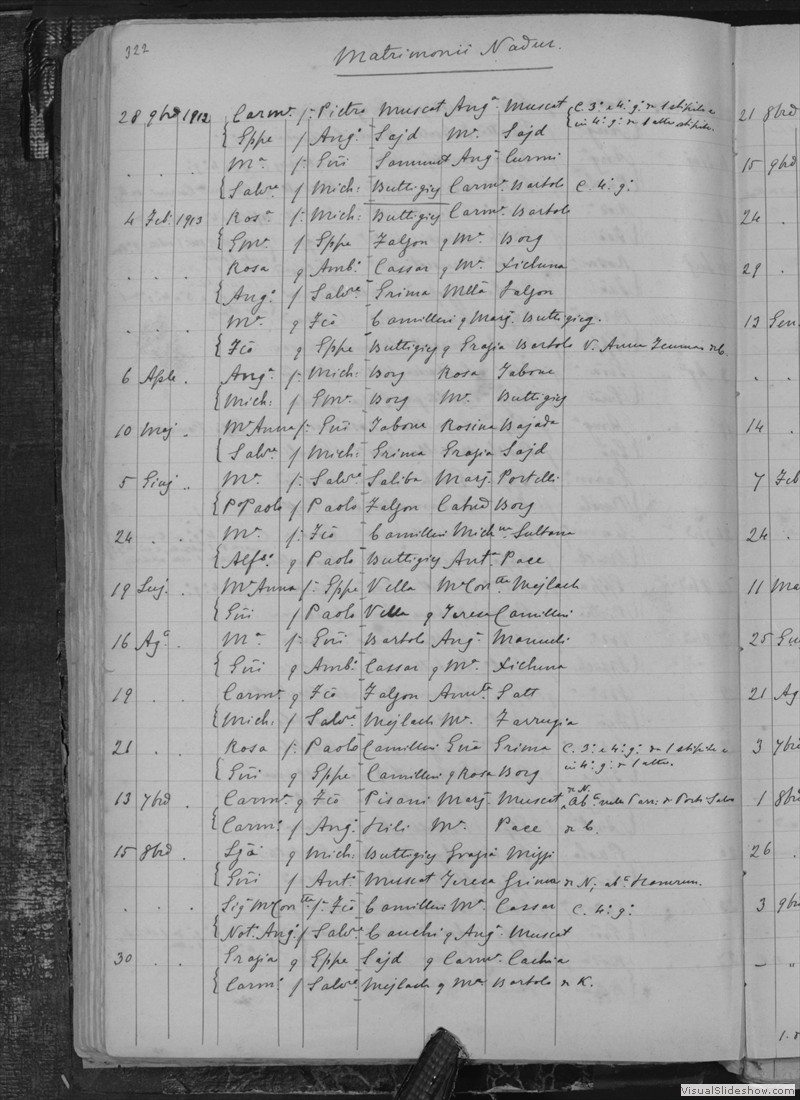 322
Matrimonii Nadur.
28 9brd 1912 Carmª f: Pietro Muscat Angª Muscat C. 3º e 4º gº da 1 stipite e
{ Gppe f Angº Sajd Mª Sajd in 4º gº da 1 altro stipite.
. . . Mª f: Giū Sammut Angª Curmi
{ Salvre f Mich: Buttigieg Carmª Bartolo C. 4º gº
4 Feb. 1913 Rosª f: Mich: Buttigieg Carmª Bartolo
{ Emº f Gppe Falzon q Mª Borg
. . . Rosa q Ambº Cassar q Mª Xicluna
{ Angº f Salvre Grima Mttā Falzon
. . . Mª q Fcō Camilleri q Marjª Buttigieg.
{ Fcō q Gppe Buttigieg q Grazia Bartolo V. Anna
6 Aple . Angª f: Mich: Borg Rosa Tabone
{ Mich: f Emº Borg Mª Buttigieg
10 Maj . Mª Anna f: Giū Tabone Rosina Bajada
{ Salvre f Mich: Grima Grazia Sajd
5 Giuj . . Mª f: Salvre Saliba Marjª Portelli
{ Pº Paolo f Paolo Falzon Catnā Borg
24 . . Mª f: Fcō Camilleri Michna Sultana
{ Alfsº q Paolo Buttigieg Antª Pace
19 Luj . Mª Anna f: Gppe Vella Mª Contta Mejlach
{ Giū f Paolo Vella q Teresa Camilleri
16 Agº . Mª f: Giū Bartolo Angª
{ Giū q Ambº Cassar q Mª Xicluna
19 . . Carmª q Fcō Falzon Annta Satt
{ Mich: f Salvre Mejlach Mª Farrugia
21 . . Rosa f: Paolo Camilleri Giūa Grima C. 3º e 4º gº da 1 stipite e
{ Giū q Gppe Camilleri q Rosa Borg in 4º gº da 1 altro.
13 7brd . Carmª q Fcō Pisani Marjª Muscat da N. abª nella Parr: di Porto Salvo
{ Carmº f Angº Xili Mª Pace da C.
15 8brd . Ljā q Mich: Buttigieg Grazia Mizzi
{ Giū f Antº Muscat Teresa Grima da N; abª Hamrun.
. . . Sigª Mª Contta f: Fcō Camilleri Mª Cassar C. 4º gº
{ Not. Angº f Salvre Cauchi q Angª Muscat
30 . . Grazia q Gppe Sajd q Carmª Cachia
{ Carmº f Salvre Mejlach q Mª Bartolo da K.
21 8brd
15 9brd
24 .
29 .
13 Gen.
. .
14 .
7 Feb
24 .
11 Ma
25 Giu
21 Ag
3 7brd
1 8brd
26 .
3 9brd
VisualSlideshow.com